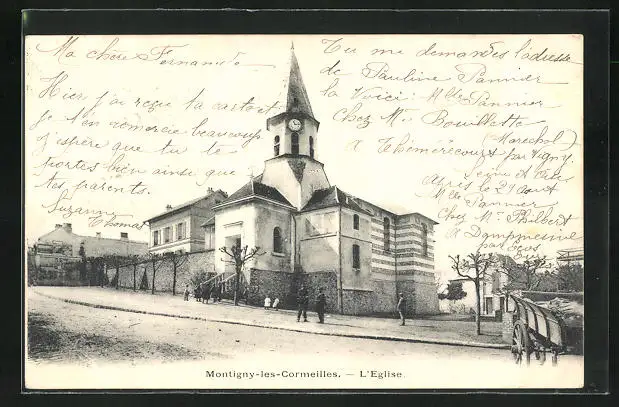 Ma chère Fernande
Hier j'ai reçu ta carte
je t'en remercie beaucoup
j'espère que tu te
portes bien ainsi que
tes parents.
Suzanne Thomas
Tu me demandes l'adresse
de Pauline Pannier
la voici Mlle Pannier
chez Mr Bouillette
(Marechal)
à Théméricourt par Vigny
Seine et Oise
Après le 29 août
Mlle Pannier
Chez Mr Philbert
à Dampmesnil
par Ecos
Montigny-les-Cormeilles. — L'Eglise